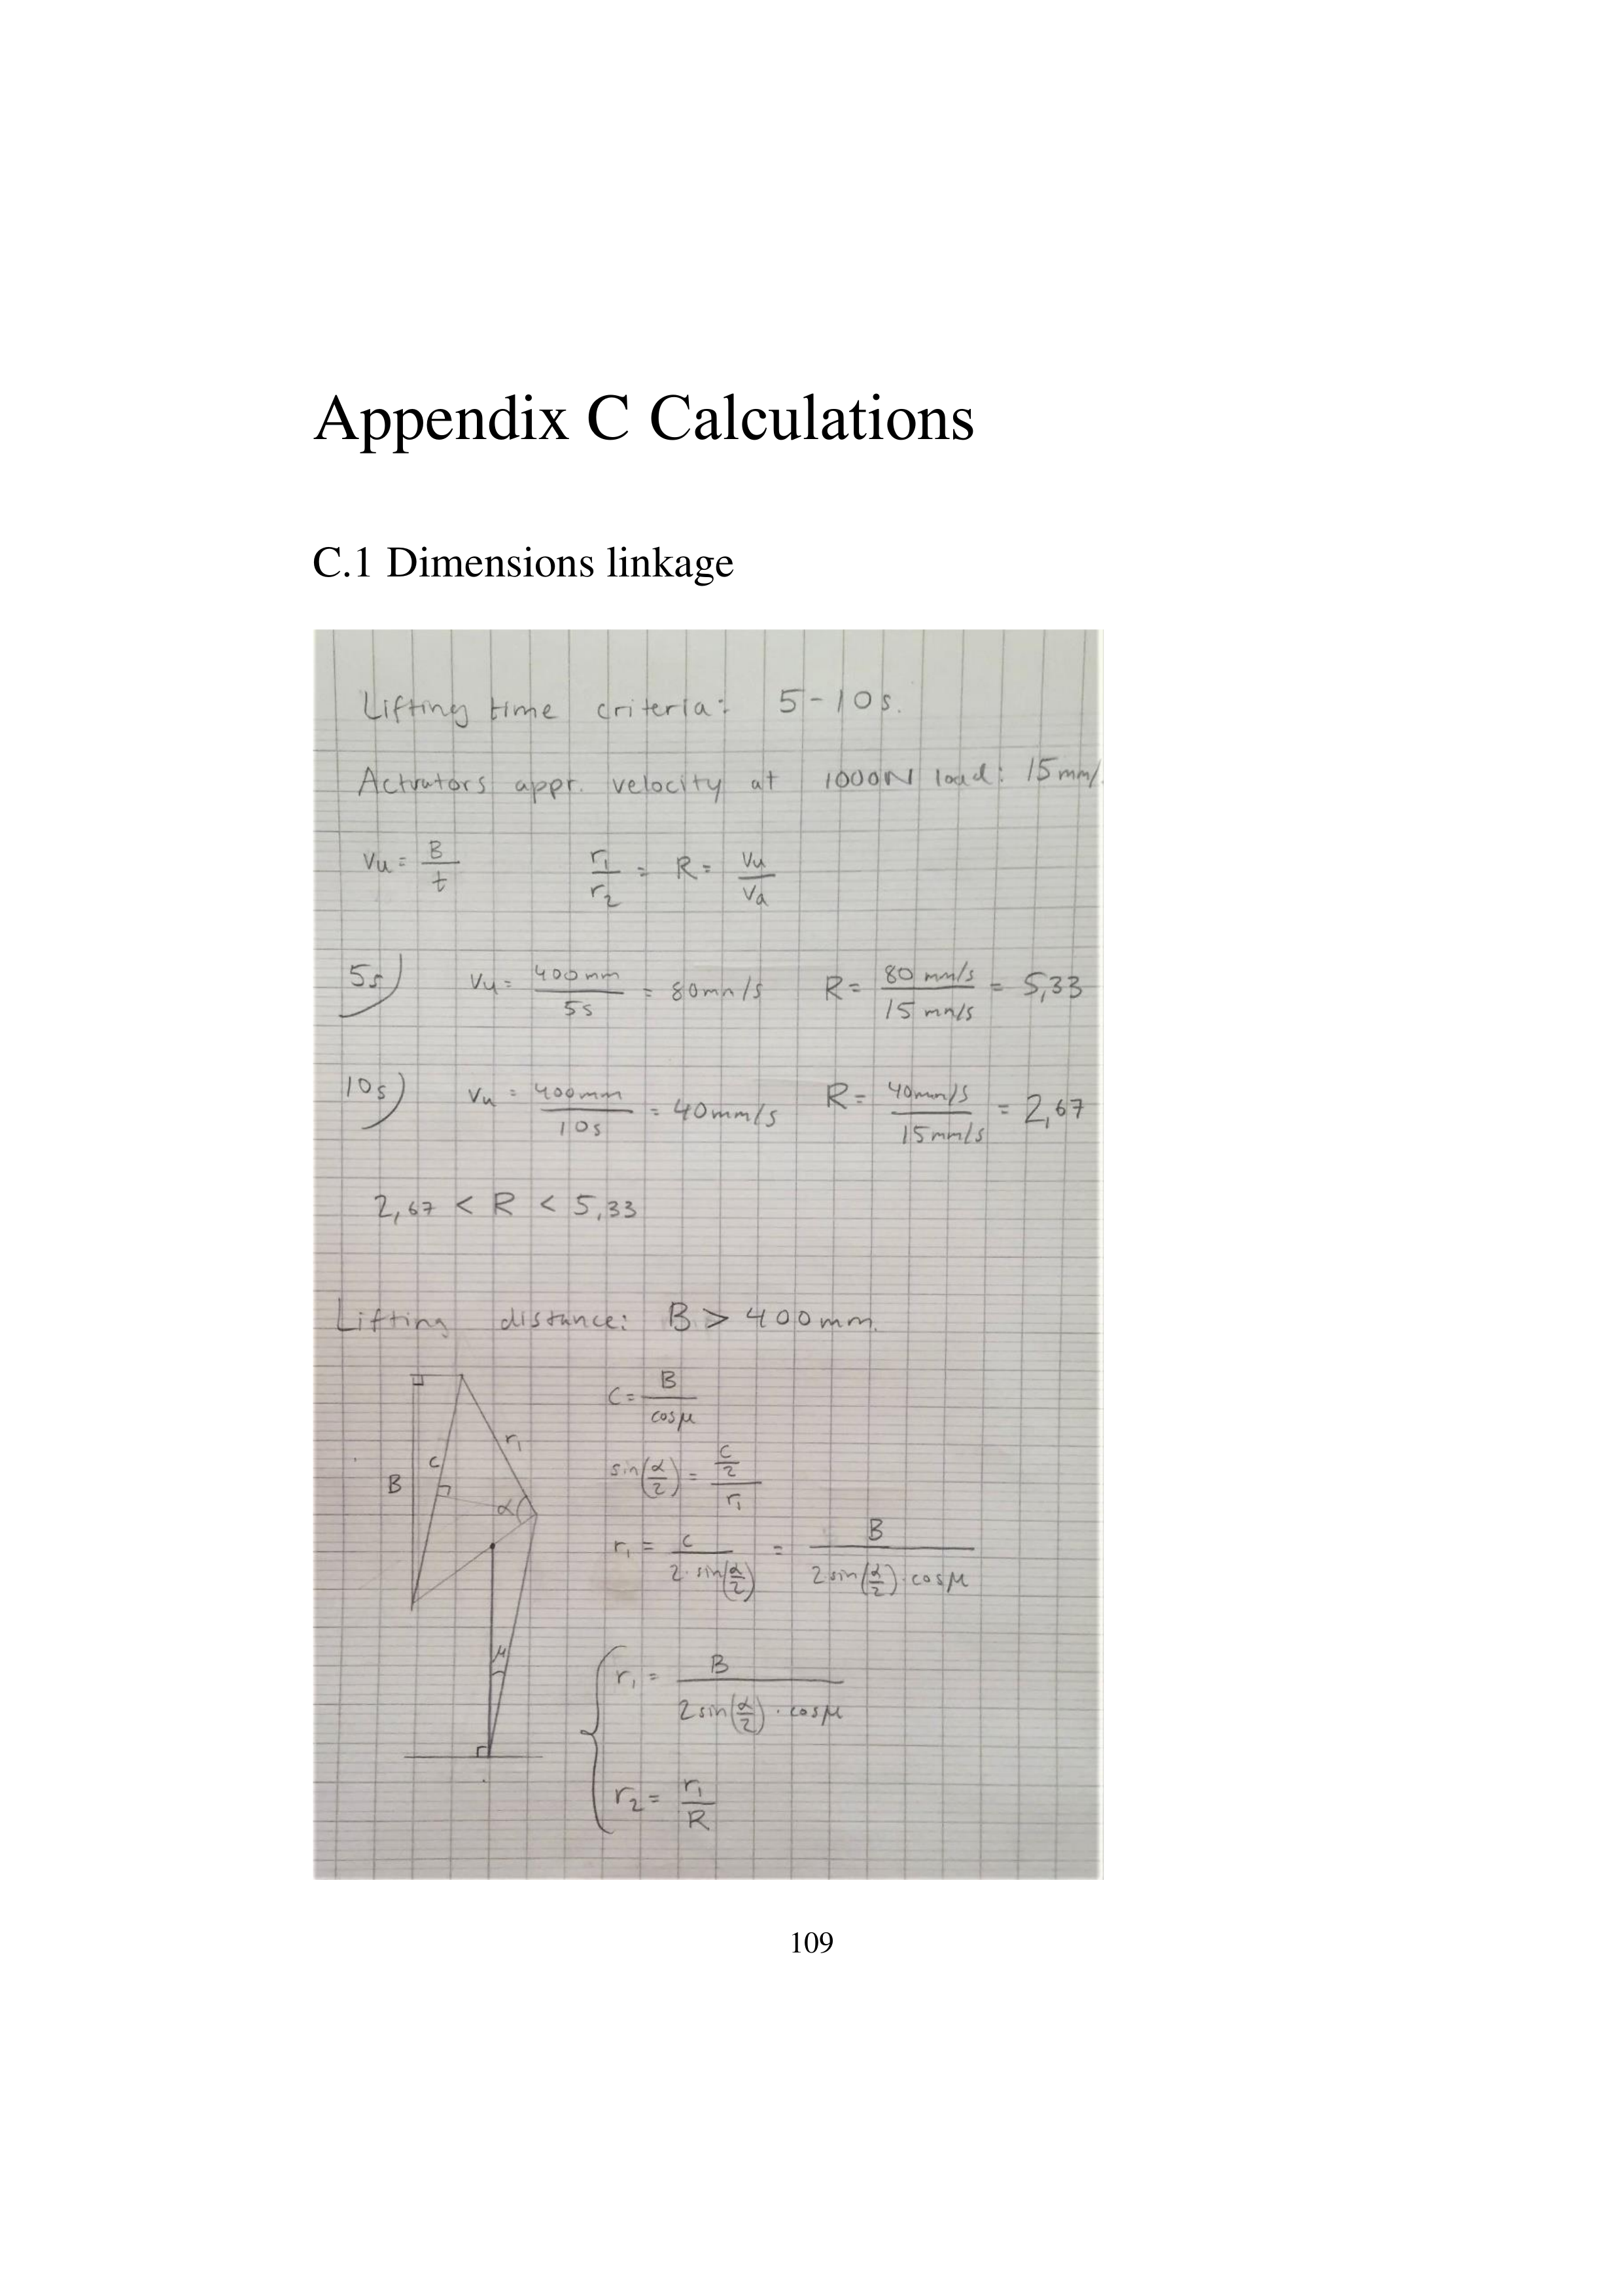 Appendix C Calculations
C.1 Dimensions linkage
Lifting time criteria: 5-10s.
Actuators appr. velocity at 1000N load: 15mm/
Vu = B/t   r1/r2 = R = Vu/Va
5s) Vu = 400mm/5s = 80mm/s   R = 80 mm/s / 15 mm/s = 5,33
10s) Vu = 400mm/10s = 40mm/s   R = 40mm/s / 15mm/s = 2,67
2,67 < R < 5,33
Lifting distance: B > 400mm.
C = B/cosμ
sin(α/2) = (C/2)/r1
r1 = C/(2·sin(α/2)) = B/(2sin(α/2)·cosμ)
r1 = B/(2sin(α/2)·cosμ)
r2 = r1/R
B
C
r1
α
μ
109